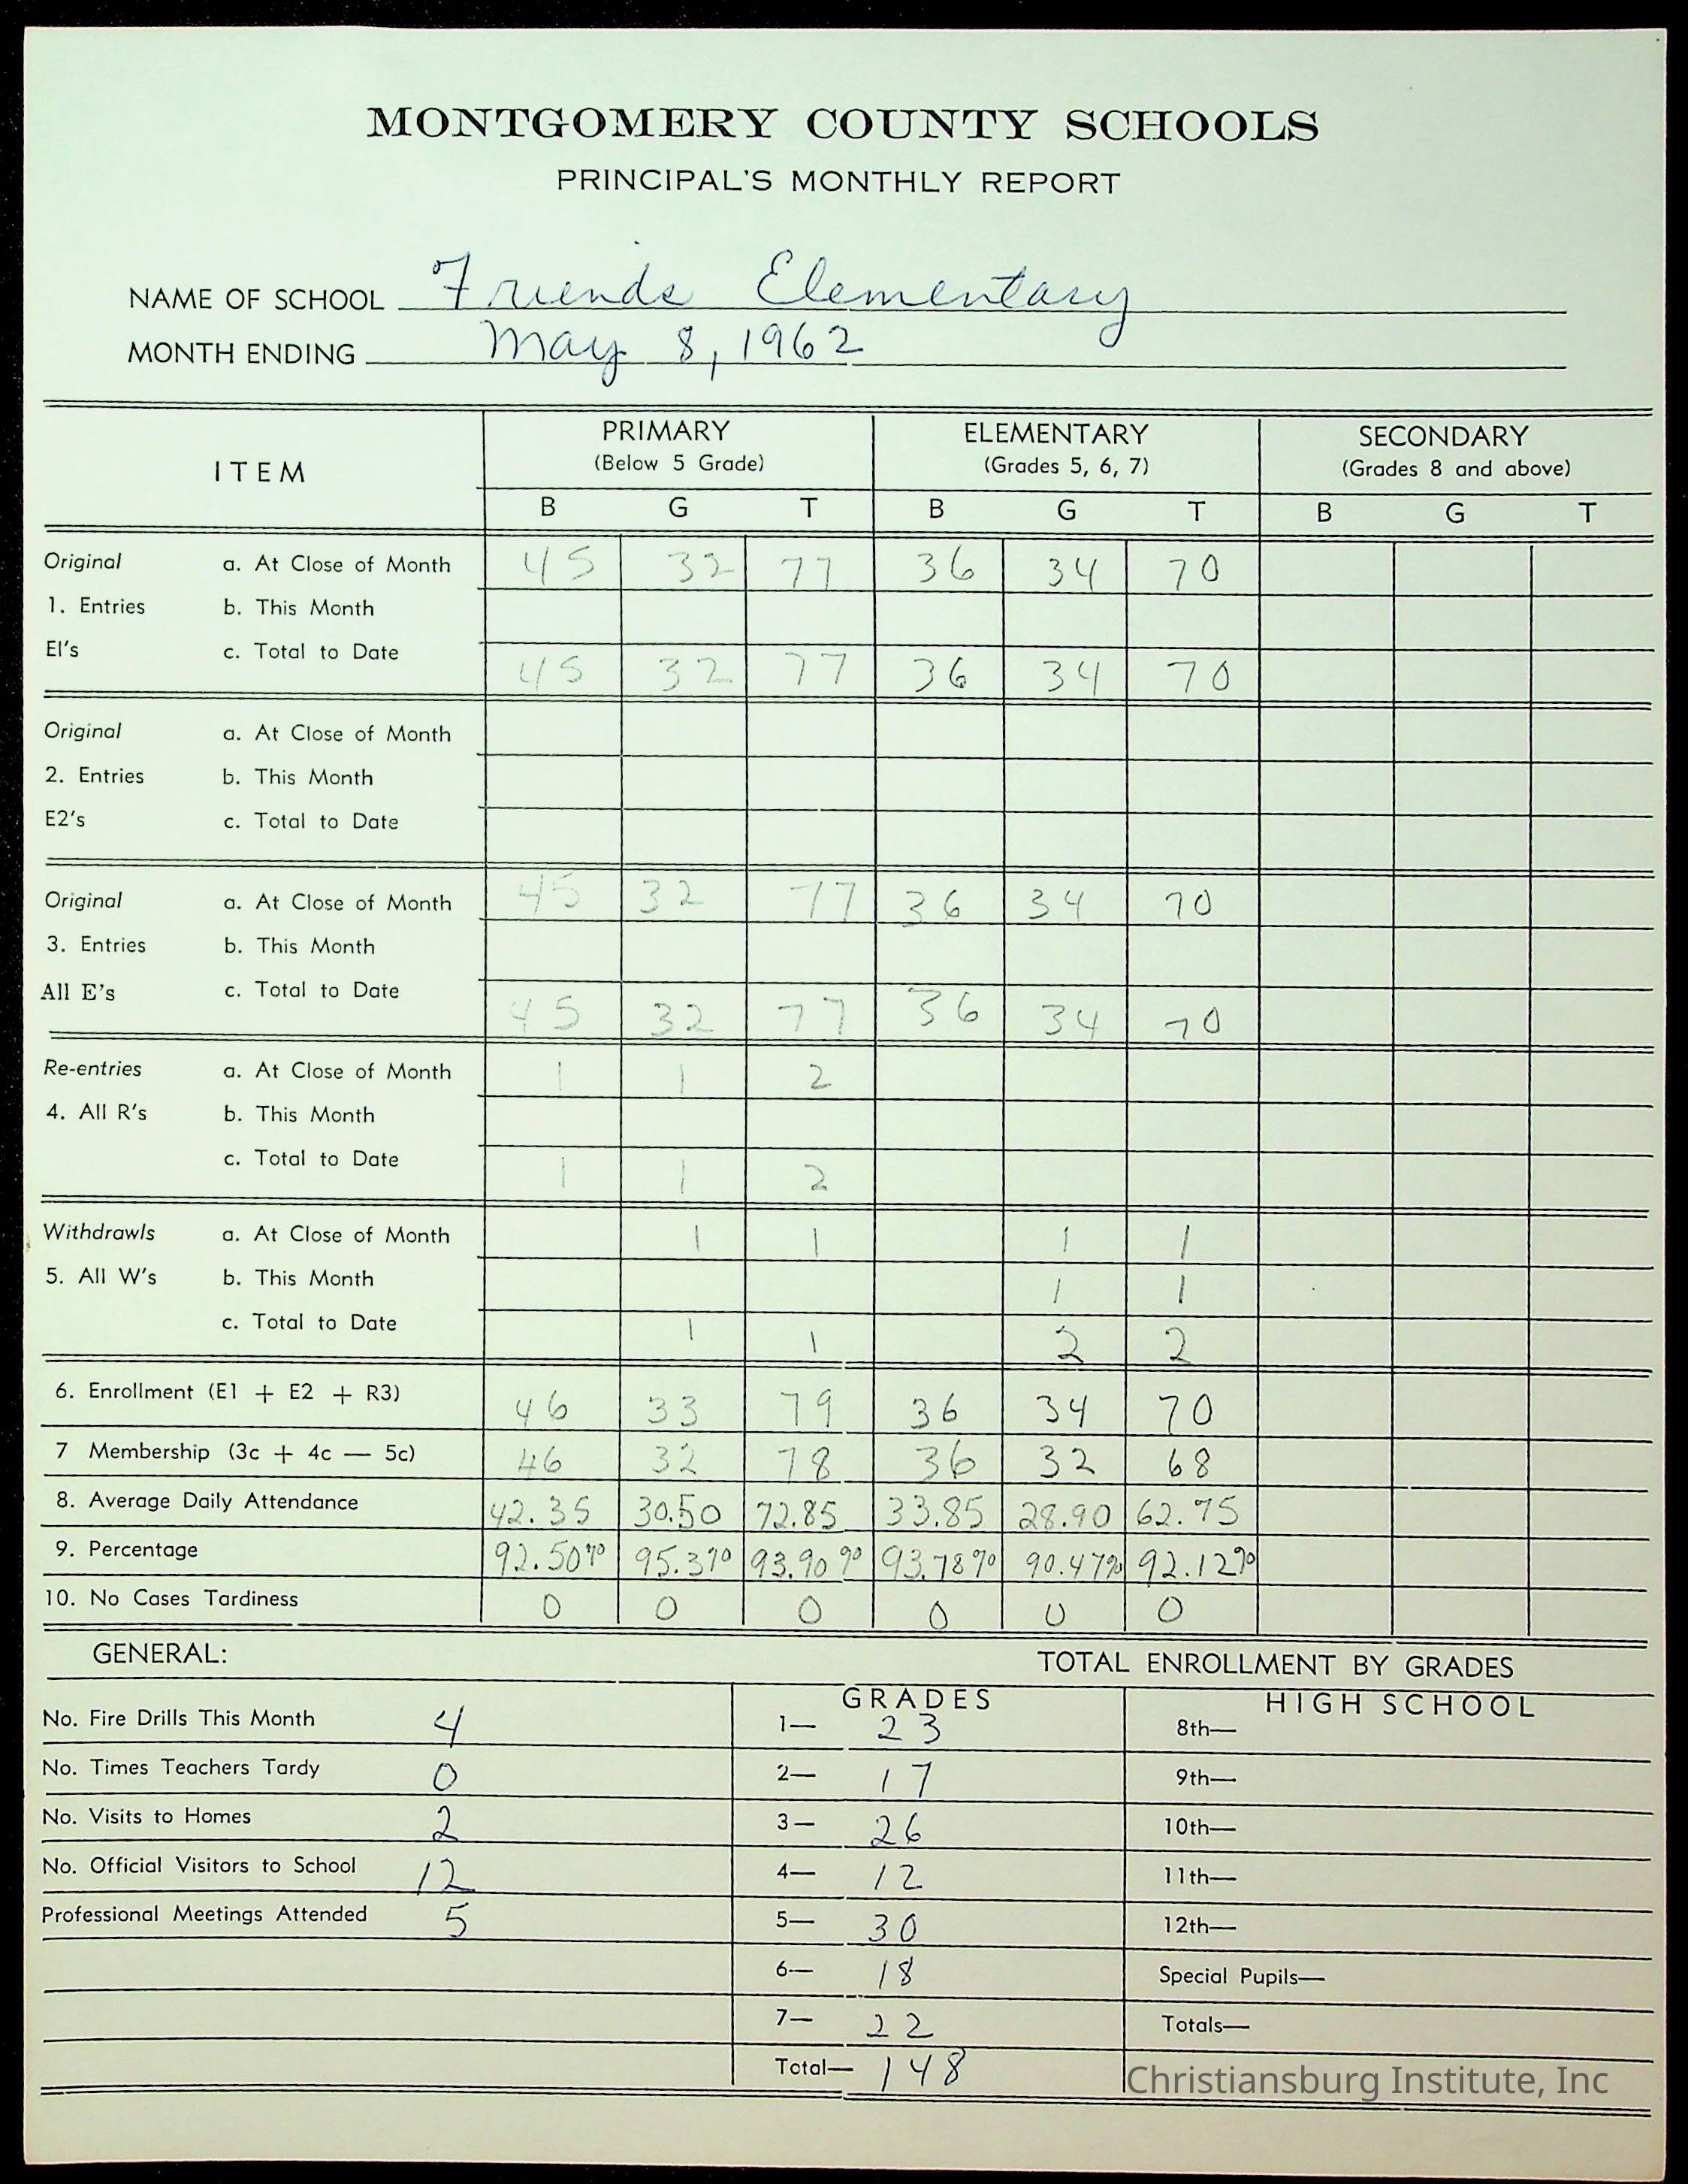 MONTGOMERY COUNTY SCHOOLS
PRINCIPAL'S MONTHLY REPORT
NAME OF SCHOOL Friends Elementary
MONTH ENDING May 8, 1962
ITEM
PRIMARY
(Below 5 Grade)
ELEMENTARY
(Grades 5, 6, 7)
SECONDARY
(Grades 8 and above)
B G T B G T B G T
Original a. At Close of Month 45 32 77 36 34 70
1. Entries b. This Month
EI's c. Total to Date 45 32 77 36 34 70
Original a. At Close of Month
2. Entries b. This Month
E2's c. Total to Date
Original a. At Close of Month 45 32 77 36 34 70
3. Entries b. This Month
All E's c. Total to Date 45 32 77 36 34 70
Re-entries a. At Close of Month 1 1 2
4. All R's b. This Month
c. Total to Date 1 1 2
Withdrawls a. At Close of Month 1 1 1 1
5. All W's b. This Month 1 1
c. Total to Date 1 1 2 2
6. Enrollment (E1 + E2 + R3) 46 33 79 36 34 70
7 Membership (3c + 4c — 5c) 46 32 78 36 32 68
8. Average Daily Attendance 42.35 30.50 72.85 33.85 28.90 62.75
9. Percentage 92.50% 95.3% 93.90% 93.78% 90.47% 92.12%
10. No Cases Tardiness 0 0 0 0 0 0
GENERAL:
TOTAL ENROLLMENT BY GRADES
GRADES HIGH SCHOOL
No. Fire Drills This Month 4 1— 23 8th—
No. Times Teachers Tardy 0 2— 17 9th—
No. Visits to Homes 2 3— 26 10th—
No. Official Visitors to School 12 4— 12 11th—
Professional Meetings Attended 5 5— 30 12th—
6— 18 Special Pupils—
7— 22 Totals—
Total— 148
Christiansburg Institute, Inc